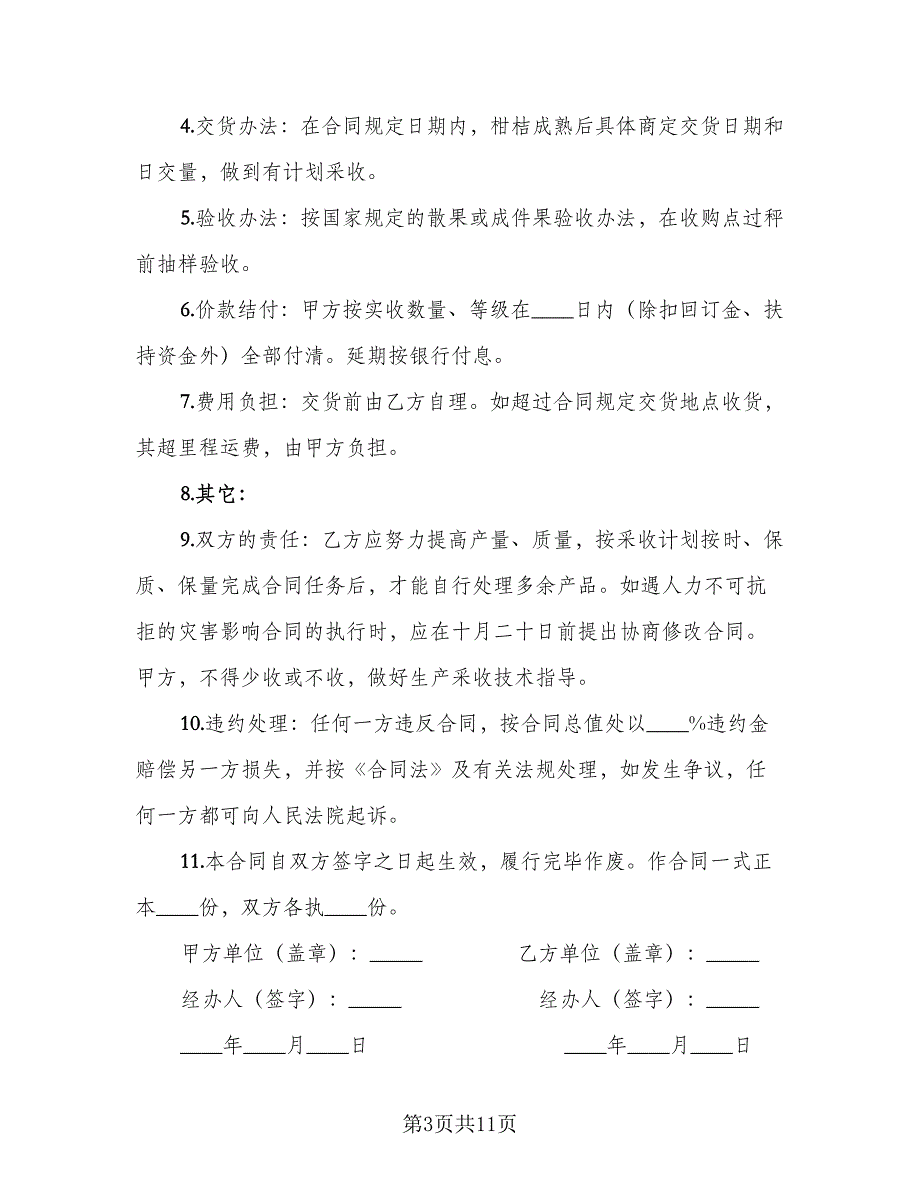 4.交货办法：在合同规定日期内，柑桔成熟后具体商定交货日期和
日交量，做到有计划采收。
5.验收办法：按国家规定的散果或成件果验收办法，在收购点过秤
前抽样验收。
6.价款结付：甲方按实收数量、等级在____日内（除扣回订金、扶
持资金外）全部付清。延期按银行付息。
7.费用负担：交货前由乙方自理。如超过合同规定交货地点收货，
其超里程运费，由甲方负担。
8.其它：
9.双方的责任：乙方应努力提高产量、质量，按采收计划按时、保
质、保量完成合同任务后，才能自行处理多余产品。如遇人力不可抗
拒的灾害影响合同的执行时，应在十月二十日前提出协商修改合同。
甲方，不得少收或不收，做好生产采收技术指导。
10.违约处理：任何一方违反合同，按合同总值处以____%违约金
赔偿另一方损失，并按《合同法》及有关法规处理，如发生争议，任
何一方都可向人民法院起诉。
11.本合同自双方签字之日起生效，履行完毕作废。作合同一式正
本____份，双方各执____份。
甲方单位（盖章）：_____ 乙方单位（盖章）：_____
经办人（签字）：_____ 经办人（签字）：_____
____年____月____日 ____年____月____日
第3页共11页